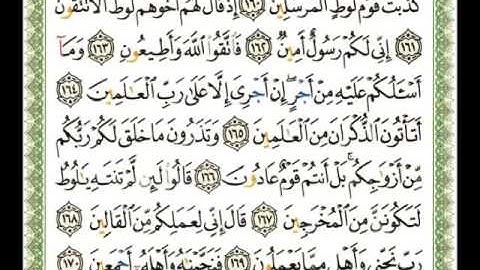 كَذَّبَتْ قَوْمُ لُوطٍ ٱلْمُرْسَلِينَ ١٦٠ إِذْ قَالَ لَهُمْ أَخُوهُمْ لُوطٌ أَلَا تَتَّقُونَ
١٦١ إِنِّى لَكُمْ رَسُولٌ أَمِينٌ ١٦٢ فَٱتَّقُوا۟ ٱللَّهَ وَأَطِيعُونِ ١٦٣ وَمَآ
أَسْـَٔلُكُمْ عَلَيْهِ مِنْ أَجْرٍ ۖ إِنْ أَجْرِىَ إِلَّا عَلَىٰ رَبِّ ٱلْعَـٰلَمِينَ ١٦٤
أَتَأْتُونَ ٱلذُّكْرَانَ مِنَ ٱلْعَـٰلَمِينَ ١٦٥ وَتَذَرُونَ مَا خَلَقَ لَكُمْ رَبُّكُم
مِّنْ أَزْوَٰجِكُم ۚ بَلْ أَنتُمْ قَوْمٌ عَادُونَ ١٦٦ قَالُوا۟ لَئِن لَّمْ تَنتَهِ يَـٰلُوطُ
لَتَكُونَنَّ مِنَ ٱلْمُخْرَجِينَ ١٦٧ قَالَ إِنِّى لِعَمَلِكُم مِّنَ ٱلْقَالِينَ ١٦٨
رَبِّ نَجِّنِى وَأَهْلِى مِمَّا يَعْمَلُونَ ١٦٩ فَنَجَّيْنَـٰهُ وَأَهْلَهُۥٓ أَجْمَعِينَ ١٧٠